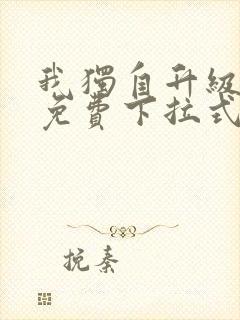 我獨自升級
免費下拉式
挽秦